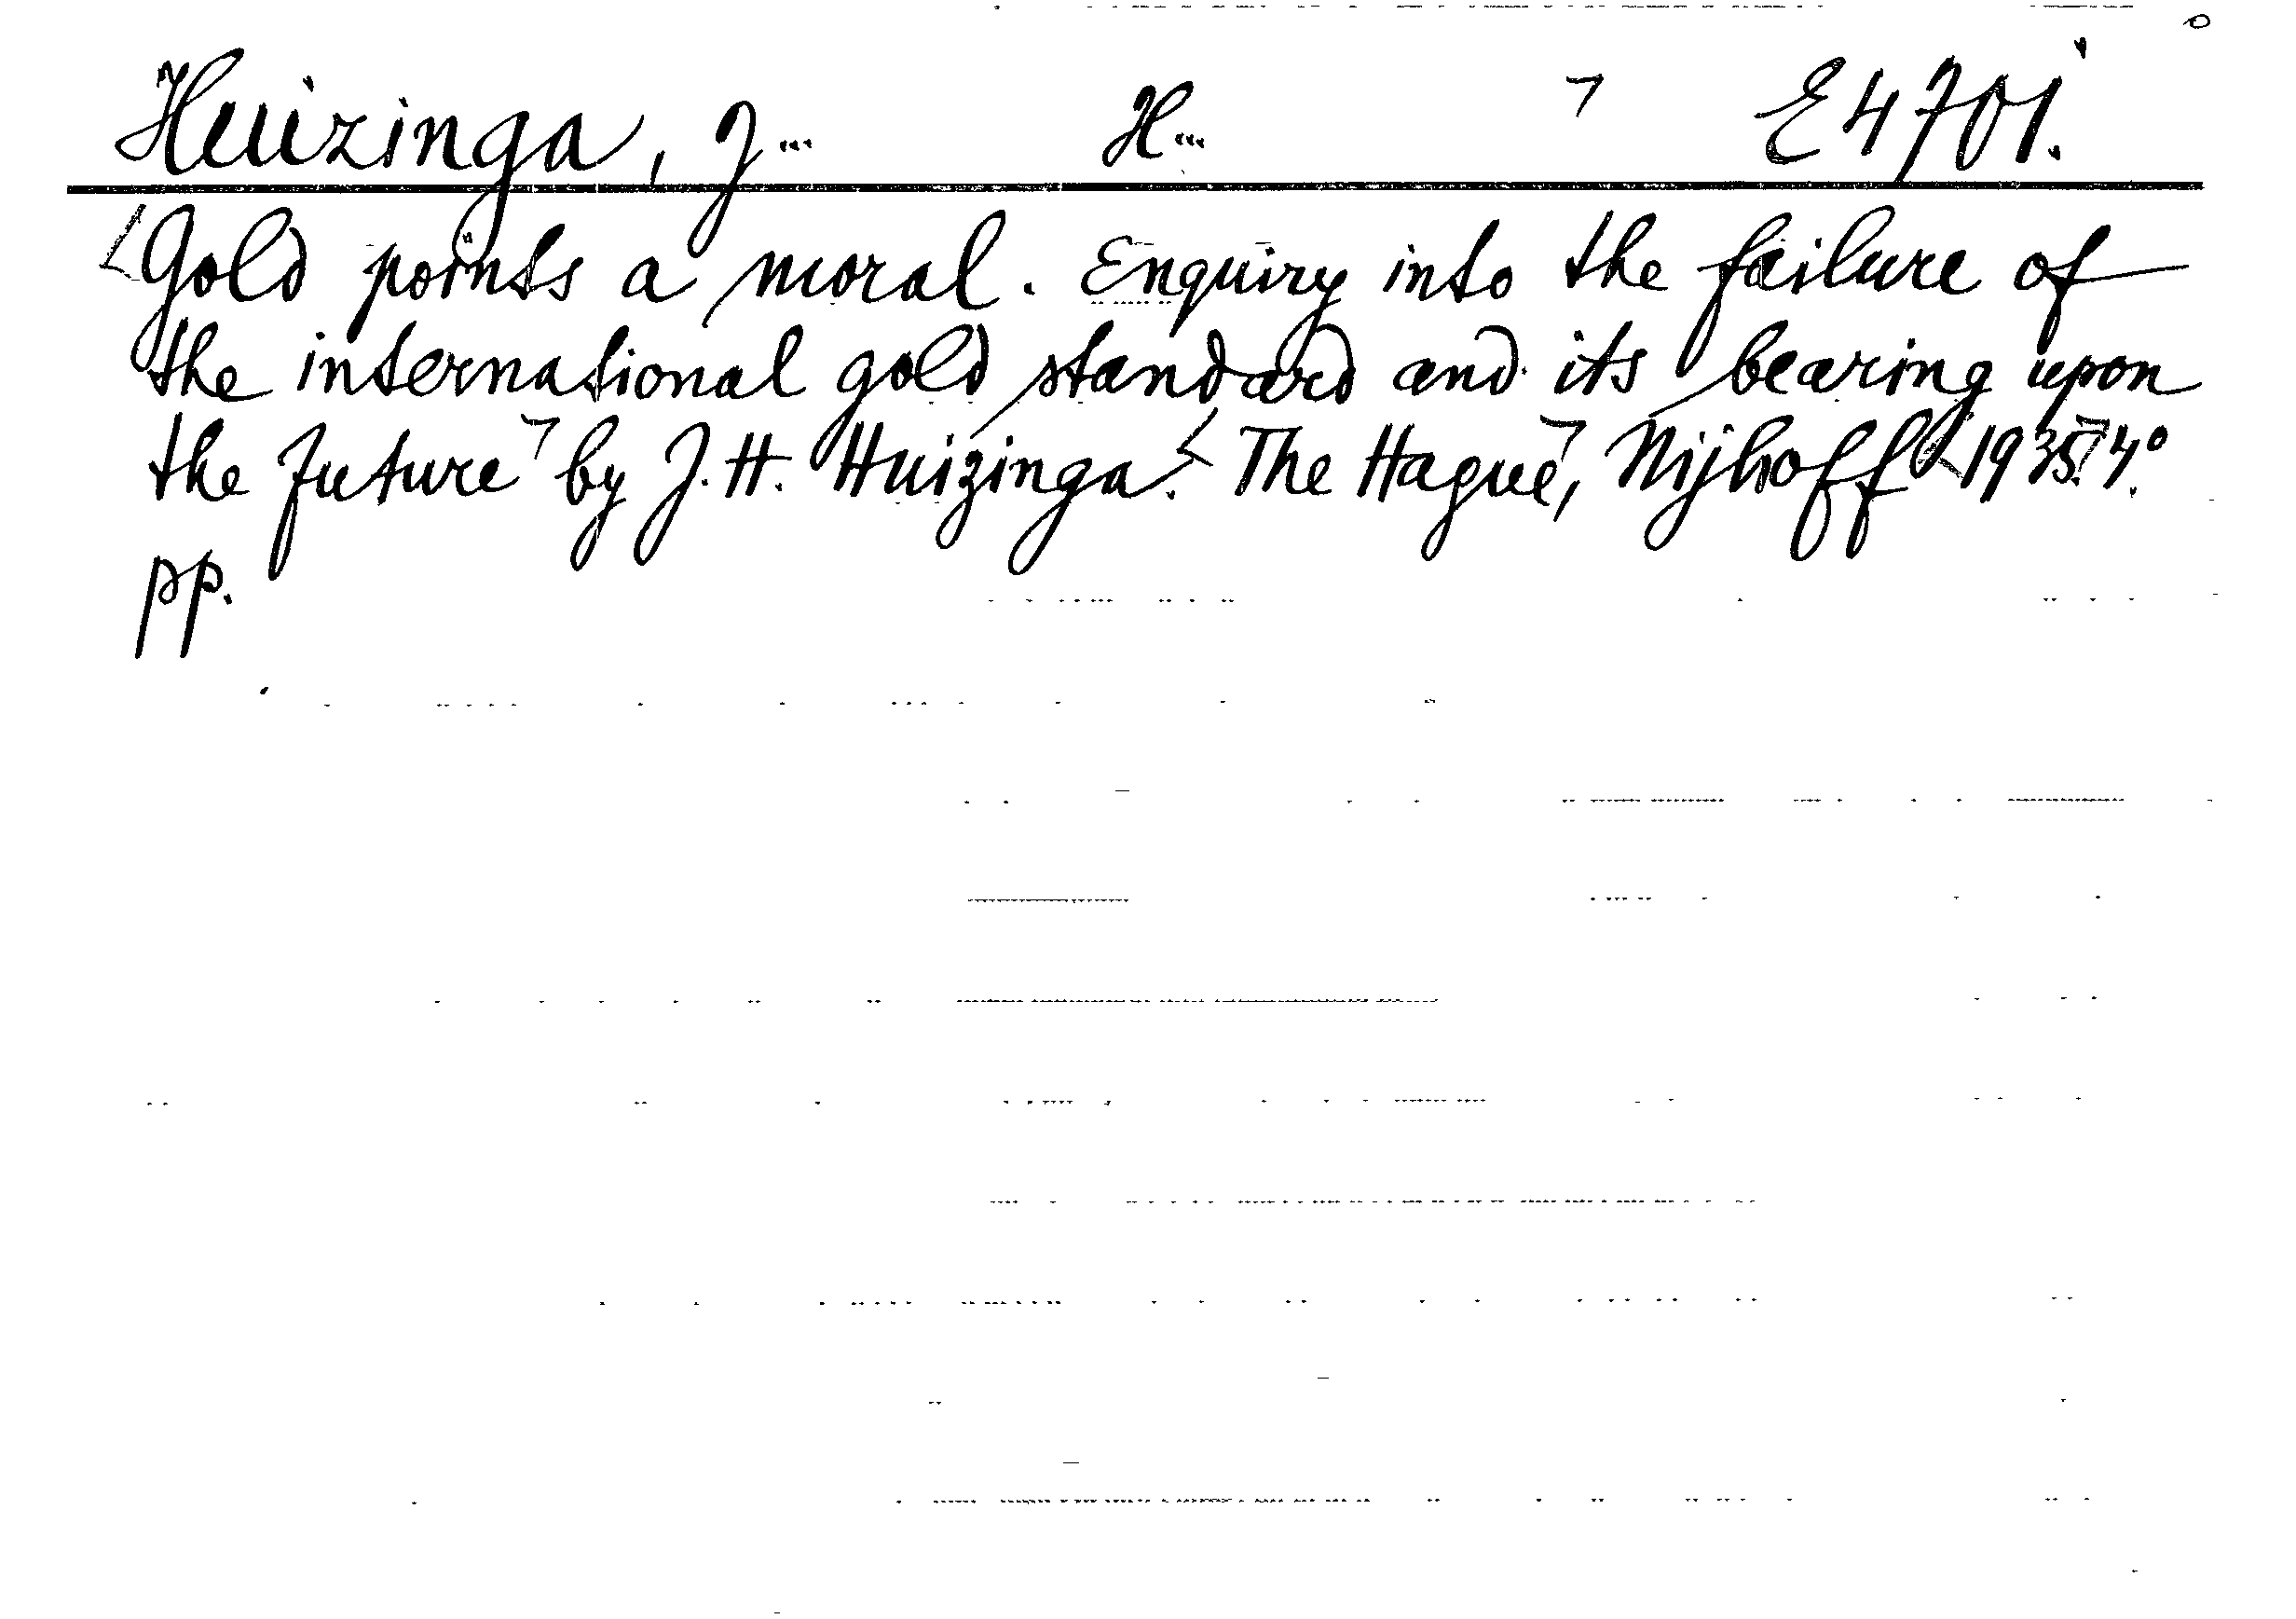 Huizinga, J... H... E4701.
Gold points a moral. Enquiry into the failure of
the international gold standard and its bearing upon
the future by J. H. Huizinga. The Hague, Nijhoff 1935. 4°.
pp.